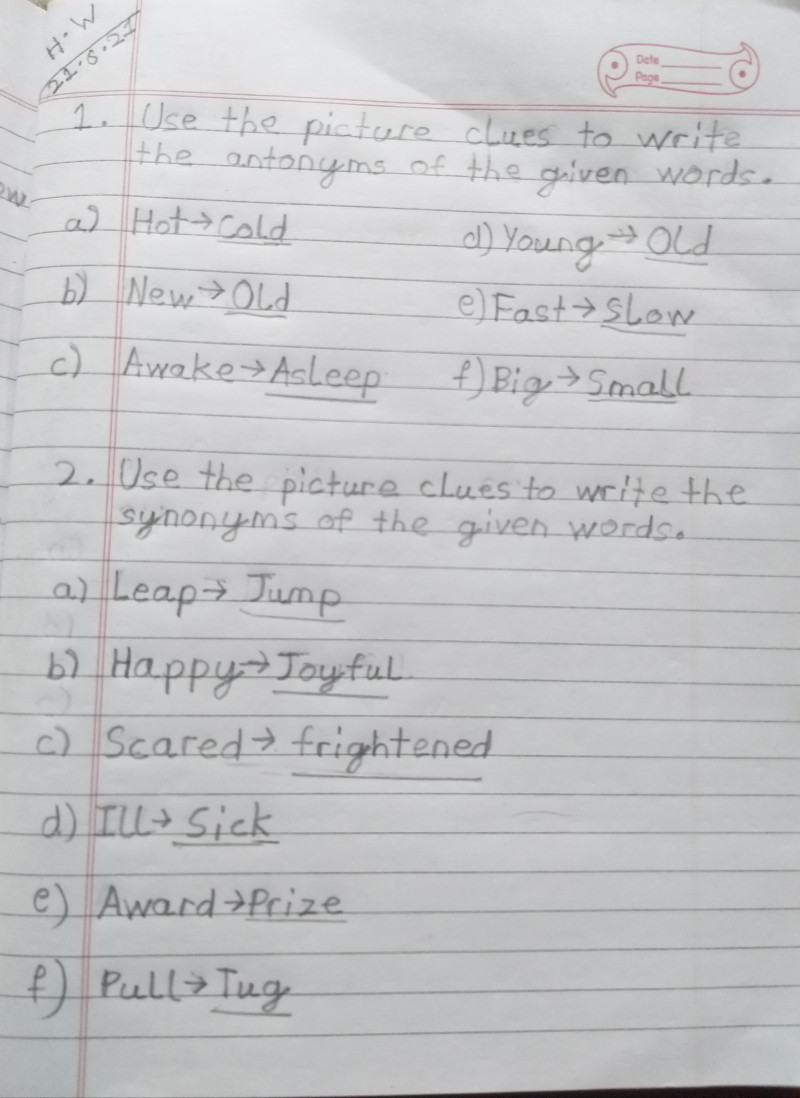 H.W
21.6.21
Date
Page
1. Use the picture clues to write
the antonyms of the given words.
a) Hot→Cold
d) Young→Old
b) New→Old
e) Fast→Slow
c) Awake→Asleep
f) Big→Small
2. Use the picture clues to write the
synonyms of the given words.
a) Leap→Jump
b) Happy→Joyful
c) Scared→frightened
d) Ill→Sick
e) Award→Prize
f) Pull→Tug